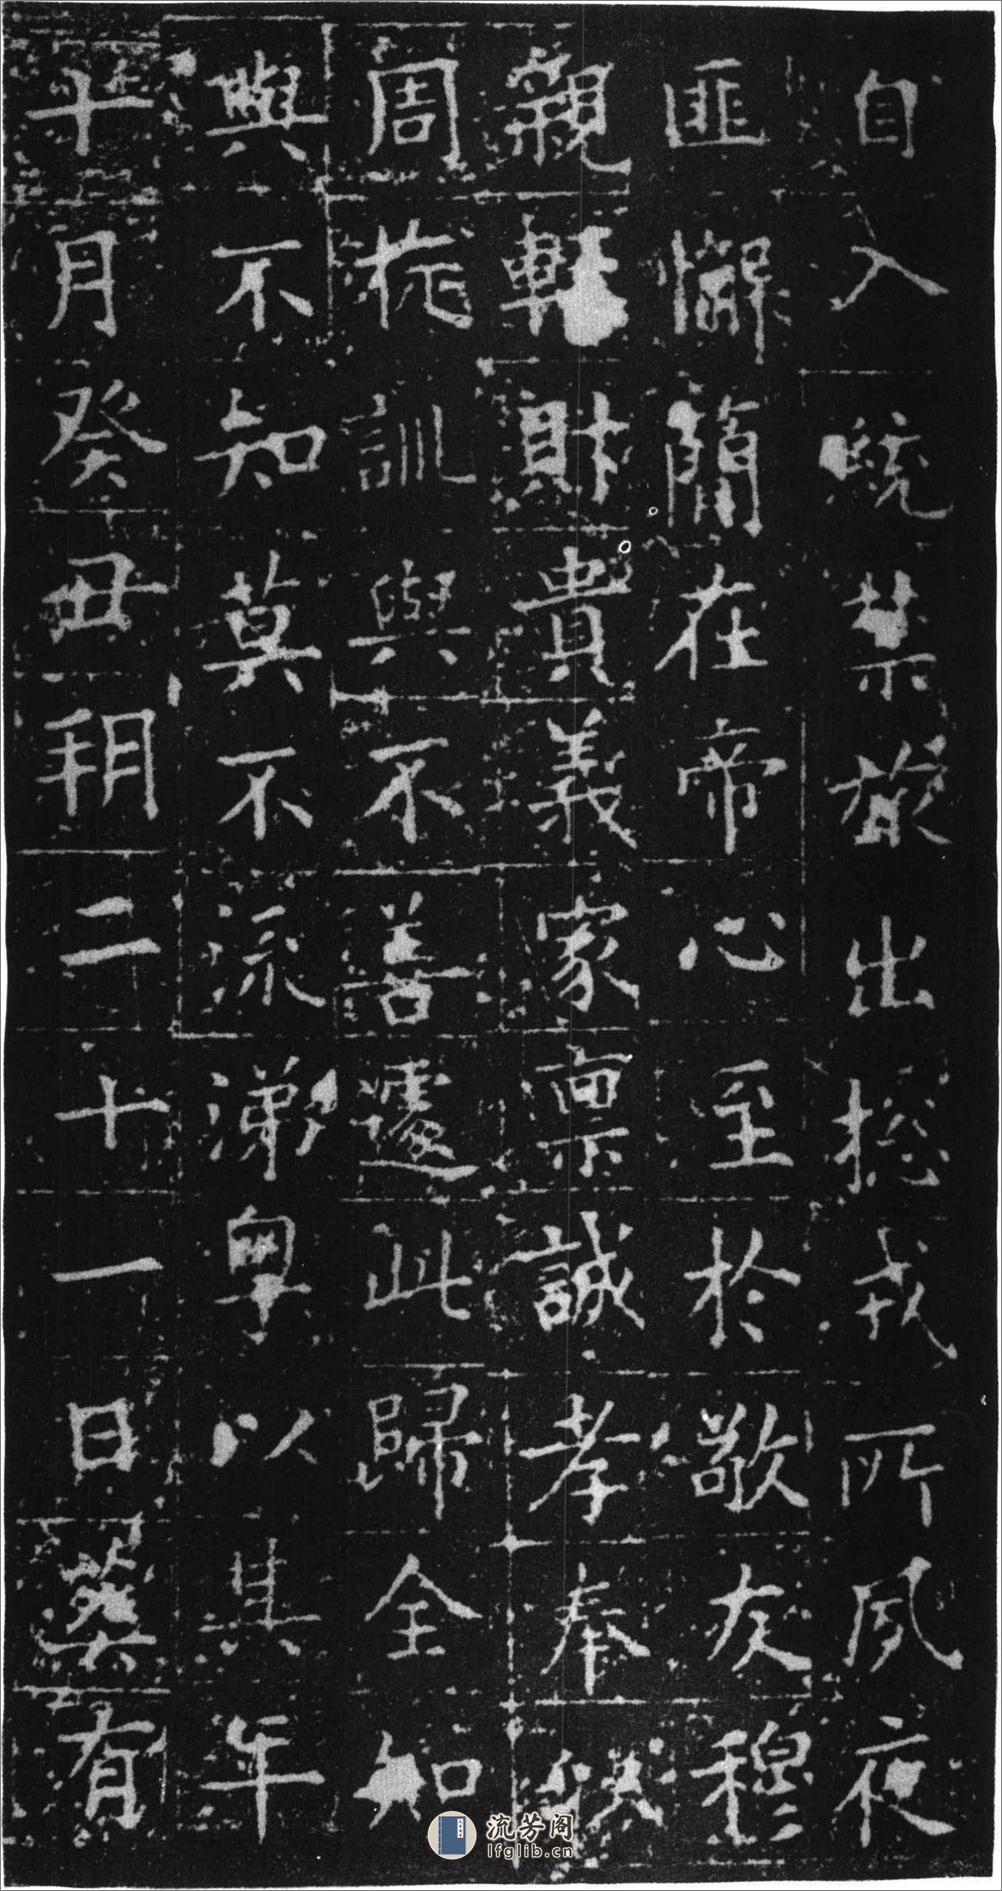 自入統禁旅出揔戎所夙夜
匪懈簡在帝心至於敬友穆
親輕財貴義家稟誠孝奉以
周旋訓與不善遽此歸全知
與不知莫不流涕粵以其年
十月癸丑朔二十一日葬有
流芳阁
lfglib.cn